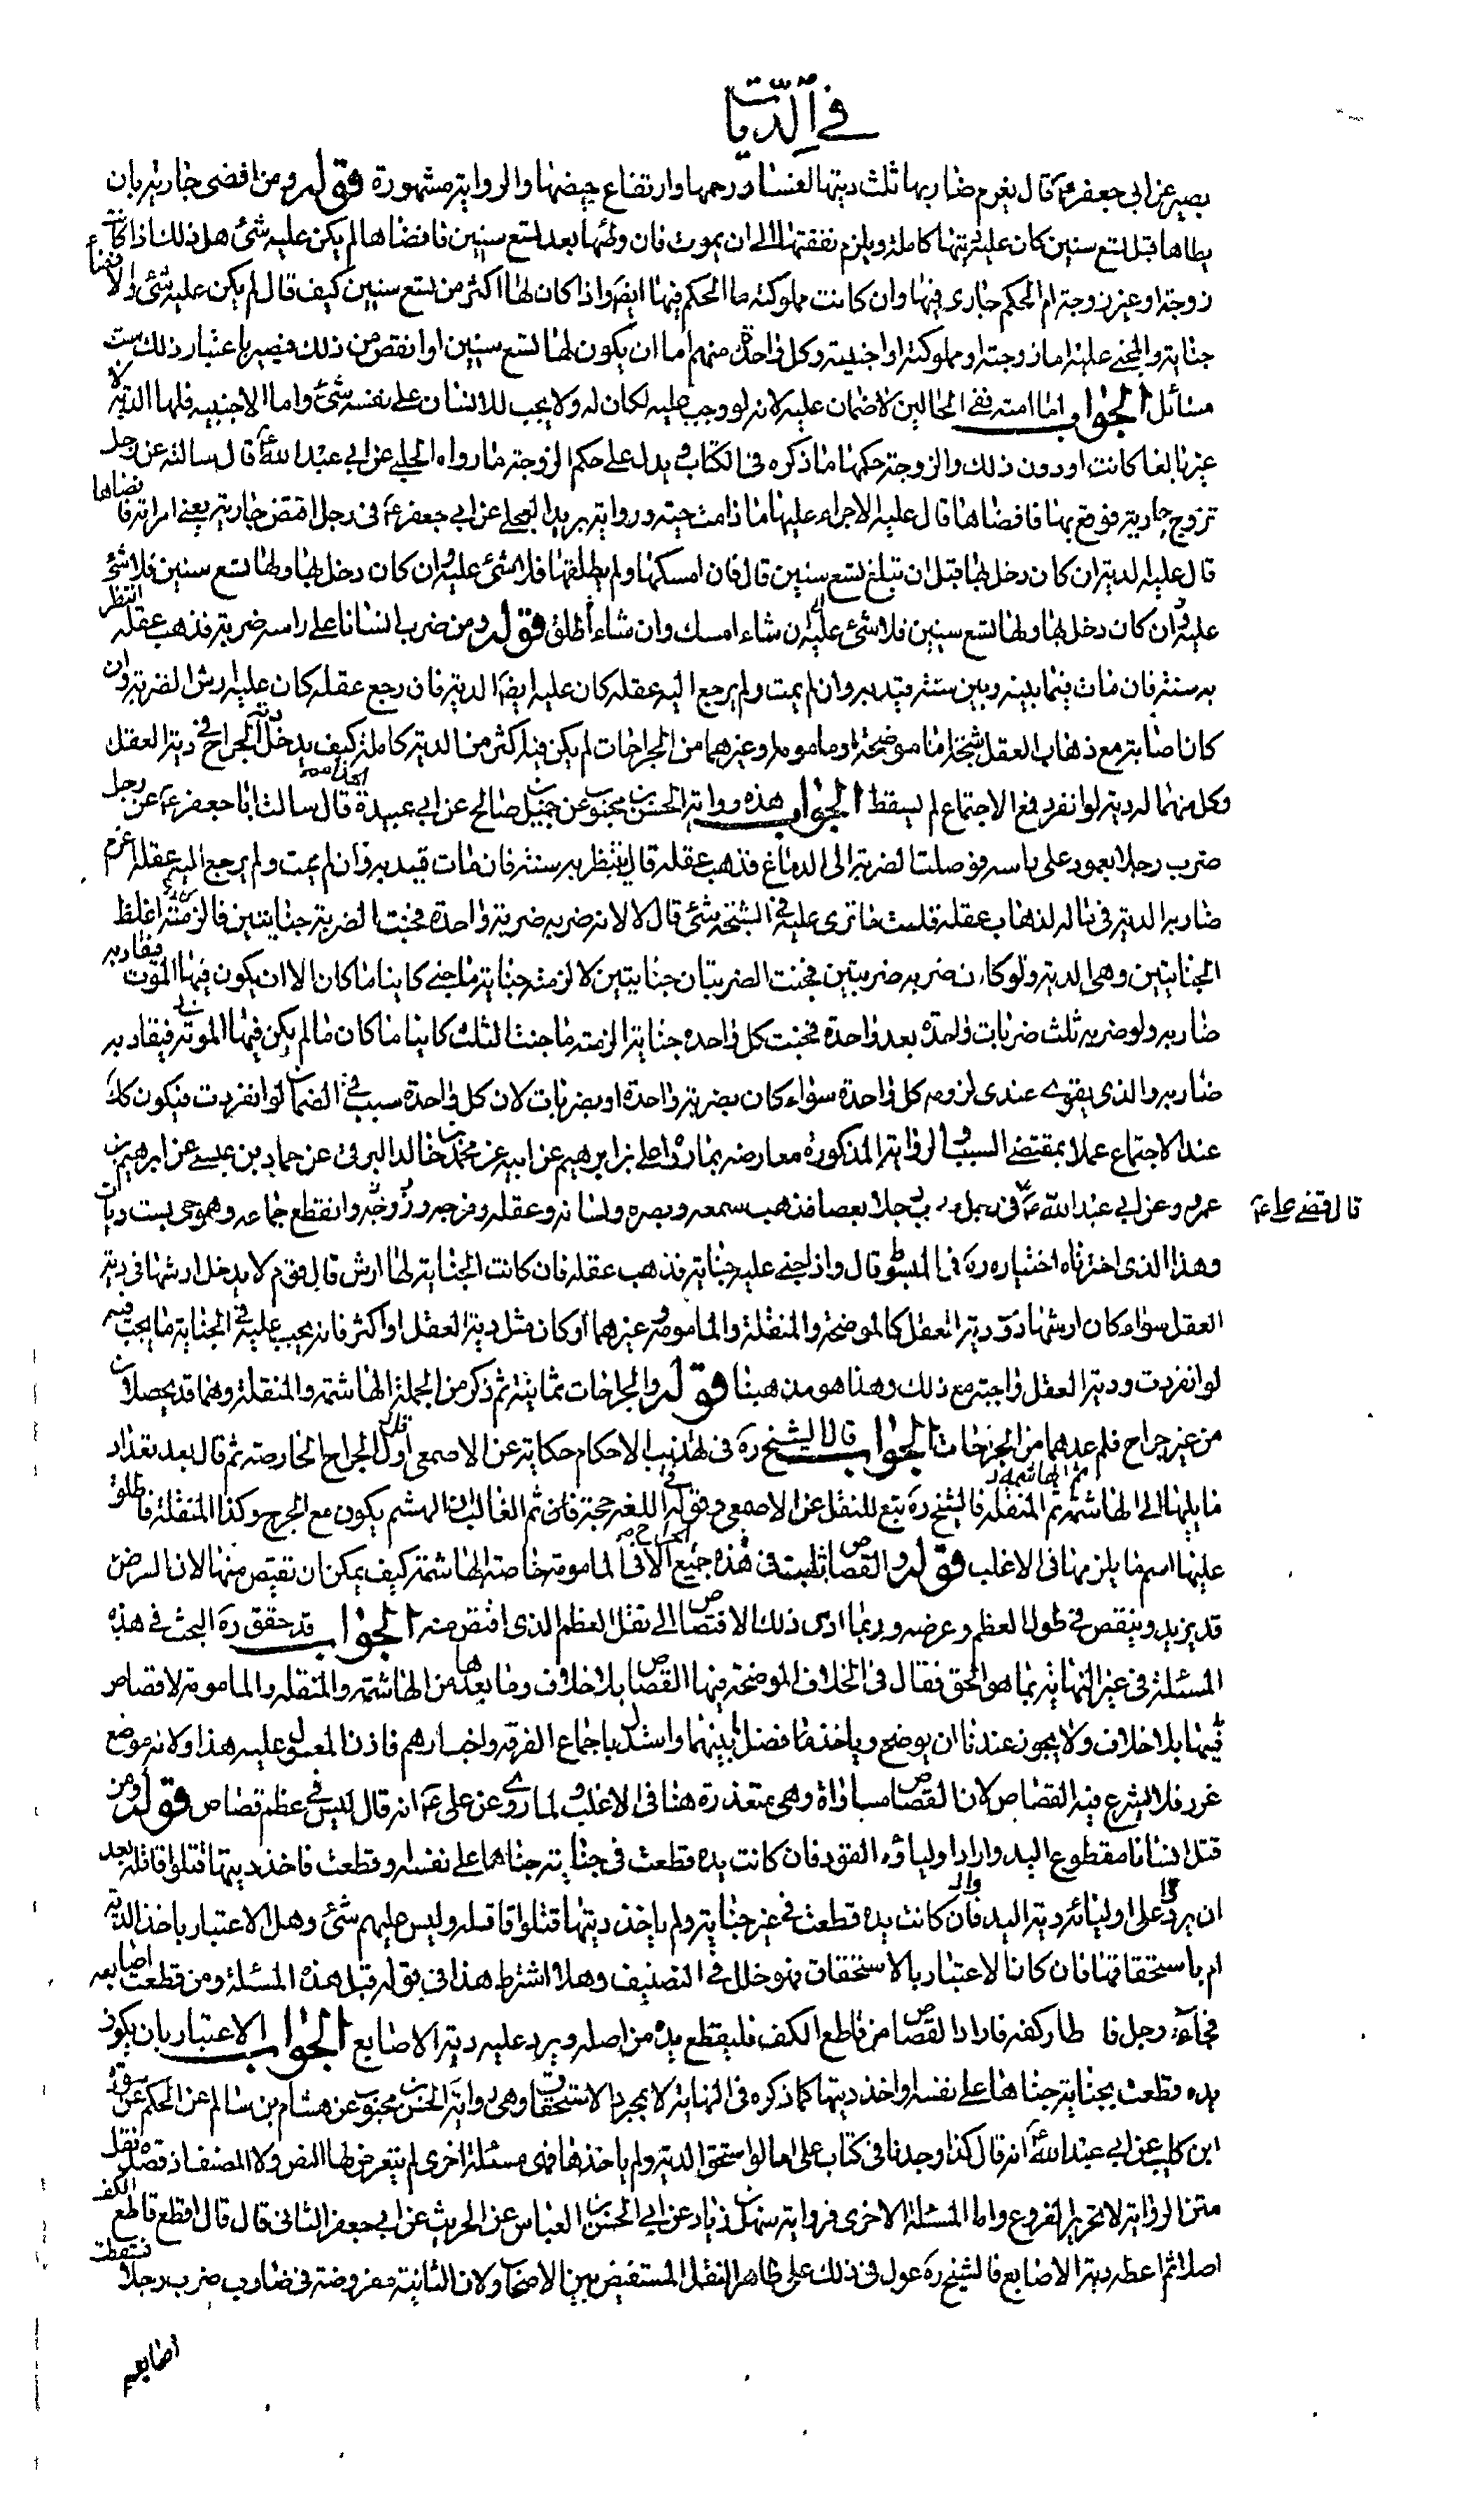 في الديات
بصير عن ابي جعفر ع قال يغرم ضاربها ثلث ديتها لفساد رحمها وارتفاع حيضها والرواية مشهورة قوله ومن افضى جارية بان
يطاها قبل تسع سنين كان عليه ديتها كاملة ويلزم نفقتها الى ان يموت فان وطئها بعد تسع سنين فافضاها لم يكن عليه شئ هل ذلك اذا كانت
زوجة او غير زوجة ام الحكم جارى فيها وان كانت مملوكته ما الحكم فيها ايضا واذا كان لها اكثر من تسع سنين كيف قال لم يكن عليه شئ ولا
جناية والمجنى عليها اما زوجته او مملوكته او اجنبية وكل واحدة منهم اما ان يكون لها تسع سنين او انقص من ذلك فيصير باعتبار ذلك ست
مسائل الجواب اما امته ففي الحالين لا ضمان عليه لانه لو وجب عليه لكان له ولا يجب للانسان على نفسه شئ واما الاجنبيه فلها الدية
بالغا كانت او دون ذلك والزوجة حكمها ما ذكره فى الكتاب ويدل على حكم الزوجة ما رواه الحلبي عن ابي عبد الله ع قال سالته عن رجل
تزوج جارية فوقع بها فافضاها قال عليه الاجراء عليها ما دامت حية ورواية بريد العجلي عن ابي جعفر ع فى رجل اقتض جارية يعنى امراته فافضاها
قال عليه الدية ان كان دخل بها قبل ان تبلغ تسع سنين قال فان امسكها ولم يطلقها فلا شئ عليه وان كان دخل بها ولها تسع سنين فلا شئ
عليه وان كان دخل بها ولها تسع سنين فلا شئ عليه ان شاء امسك وان شاء طلق قوله ومن ضرب انسانا على راسه ضربة فذهب عقله انتظر
به سنة فان مات فيما بينه وبين سنة قيد به وان لم يمت ولم يرجع اليه عقله كان عليه ايضا الدية فان رجع عقله كان عليه ارش الضربة وان
كان اصابه مع ذهاب العقل شجة اما موضحة او مامومة او غيرهما من الجراحات لم يكن فيه اكثر من الدية كاملة كيف يدخل دية الجراح في دية العقل
وكل منهما له دية لو انفرد فمع الاجتماع لم يسقط الجواب هذه رواية الحسن بن محبوب عن جميل بن صالح عن ابي عبيدة قال سالت ابا جعفر ع عن رجل
ضرب رجلا بعمود على راسه فوصلت الضربة الى الدماغ فذهب عقله قال ينتظر به سنة فان مات قيد به وان لم يمت ولم يرجع اليه عقله غرم
ضاربه الدية فى ماله لذهاب عقله قلت ما ترى عليه في الشجة شئ قال لا لانه ضربه ضربة واحدة فجنت الضربة جنايتين فالزمته اغلظ
الجنايتين وهي الدية ولو كان ضربه ضربتين فجنت الضربتان جنايتين لالزمته جناية ما جنى كاينا ما كان الا ان يكون فيها الموت فيقاد به
ضاربه ولو ضربه ثلث ضربات واحدة بعد واحدة فجنت كل واحدة جناية الزمته ما جنت الثلث كاينا ما كان ما لم يكن فيها الموت فيقاد به
ضاربه والذى يقوى عندى لزوم كل واحدة سواء كان بضربة واحدة او بضربات لان كل واحدة سبب في الضمان لو انفردت فيكون كك
عند الاجتماع عملا بمقتضى السبب والرواية المذكورة معارضة بما رواه على بن ابرهيم عن ابيه عن محمد بن خالد البرقى عن حماد بن عيسى عن ابرهيم بن
عمر وعن ابي عبد الله ع فى رجل ضرب رجلا بعصا فذهب سمعه وبصره ولسانه وعقله وفرجه وانقطع جماعه وهو حى بست ديات
قال قضى على ع
وهذا الذى اخترناه اختياره ره فى المبسوط قال واذا جنى عليه جناية فذهب عقله فان كانت الجناية لها ارش قال قوم لا يدخل ارشها فى دية
العقل سواء كان ارشها دون دية العقل كالموضحة والمنقلة والمامومة وغيرهما او كان مثل دية العقل او اكثر فانه يجب عليه في الجناية ما يجب فيه
لو انفردت ودية العقل واجبة مع ذلك وهذا هو مذهبنا قوله والجراحات ثمانية ثم ذكر من الجملة الهاشمة والمنقلة وهما قد يحصلان
من غير جراح فلم عدهما من الجراحات الجواب قال الشيخ ره فى تهذيب الاحكام حكاية عن الاصمعى اول الجراح الحارصة ثم قال بعد تعداد
ما يليها الى الهاشمة ثم المنقلة فالشيخ ره تبع للنقل عن الاصمعى وقوله في اللغة حجة فان ثم الغالب ان الهشم يكون مع الجرح وكذا المنقلة فاطلق
عليها اسم ما يلزمها فى الاغلب قوله والقصاص ثابت فى هذه جميع الا فى المامومة خاصة الهاشمة كيف يمكن ان تقتص منها لان المرض
قد يزيد وينقص في طول العظم وعرضه وربما ادى ذلك الاقتصاص الى نقل العظم الذى اقتص منه الجواب قد حقق ره البحث في هذه
المسئلة فى غير النهاية بما هو الحق فقال فى الخلاف الموضحة فيها القصاص بلا خلاف وما بعدها من الهاشمة والمنقلة والمامومة لا قصاص
فيها بلا خلاف ولا يجوز عندنا ان يوضح وياخذ ما فضل بينهما واستدل باجماع الفرقة واخبارهم فاذن المعول عليه هذا ولانه موضع
غرر فلا يشرع فيه القصاص لان القصاص مساواة وهى متعذرة هنا فى الاغلب ولما روى عن على ع انه قال ليس في عظم قصاص قوله ومن
قتل انسانا مقطوع اليد واراد اولياؤه القود فان كانت يده قطعت فى جناية جناها على نفسه وقطعت فاخذ ديتها قتلوا قاتله بعد
ان يردوا على اوليائه دية اليد وان كانت يده قطعت في غير جناية ولم ياخذ ديتها قتلوا قاتله وليس عليهم شئ وهل الاعتبار باخذ الدية
ام باستحقاقها فان كان الاعتبار بالاستحقاق فهو خلل في التصنيف وهلا اشترط هذا فى قوله قبل هذه المسئلة ومن قطعت اصابعه
فجاءه رجل فاطار كفه فاراد القصاص من قاطع الكف فليقطع يده من اصله ويرد عليه دية الاصابع الجواب الاعتبار بان يكون
يده قطعت بجناية جناها على نفسه واخذ ديتها كما ذكره فى النهاية لا بمجرد الاستحقاق وهى رواية الحسن بن محبوب عن هشام بن سالم عن سورة
ابن كليب عن ابي عبد الله ع انه قال كذا وجدنا فى كتاب على اما لو استحق الدية ولم ياخذها فهى مسئلة اخرى لم يتعرض لها النص ولا المصنف اذ قصده نقل
متن الرواية لا تحرير الفروع واما المسئلة الاخرى فرواية سهل بن زياد عن الحسن بن العباس عن الحريش عن ابي جعفر الثانى قال قال اقطع قاطع الكف
اصلا ثم اعطه دية الاصابع فالشيخ ره عول فى ذلك على ظاهر النقل المستفيض بين الاصحاب ولان الثانية مفروضة فى ضارب ضرب رجلا فسقطت
اصابعه